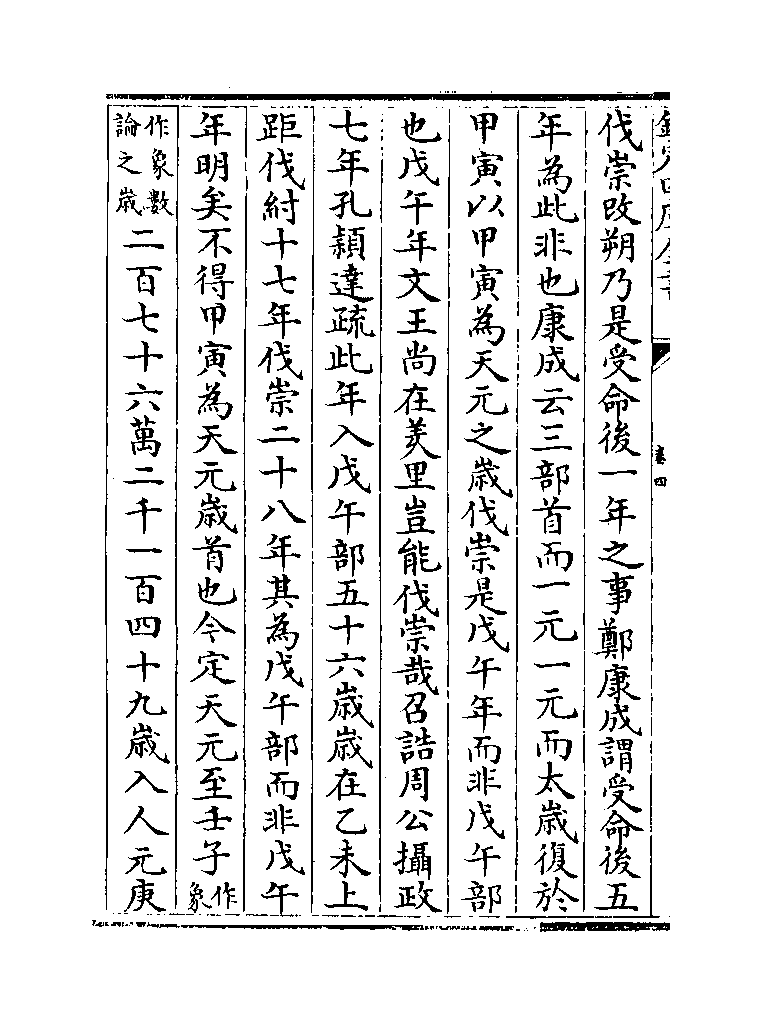 欽定四庫全書
卷四
伐崇改朔乃是受命後一年之事鄭康成謂受命後五
年為此非也康成云三部首而一元一元而太歲復於
甲寅以甲寅為天元之歲伐崇是戊午年而非戊午部
也戊午年文王尚在羑里豈能伐崇哉召誥周公攝政
七年孔穎達疏此年入戊午部五十六歲歲在乙未上
距伐紂十七年伐崇二十八年其為戊午部而非戊午
年明矣不得甲寅為天元歲首也今定天元至壬子作象
作象數論之歲二百七十六萬二千一百四十九歲入人元庚